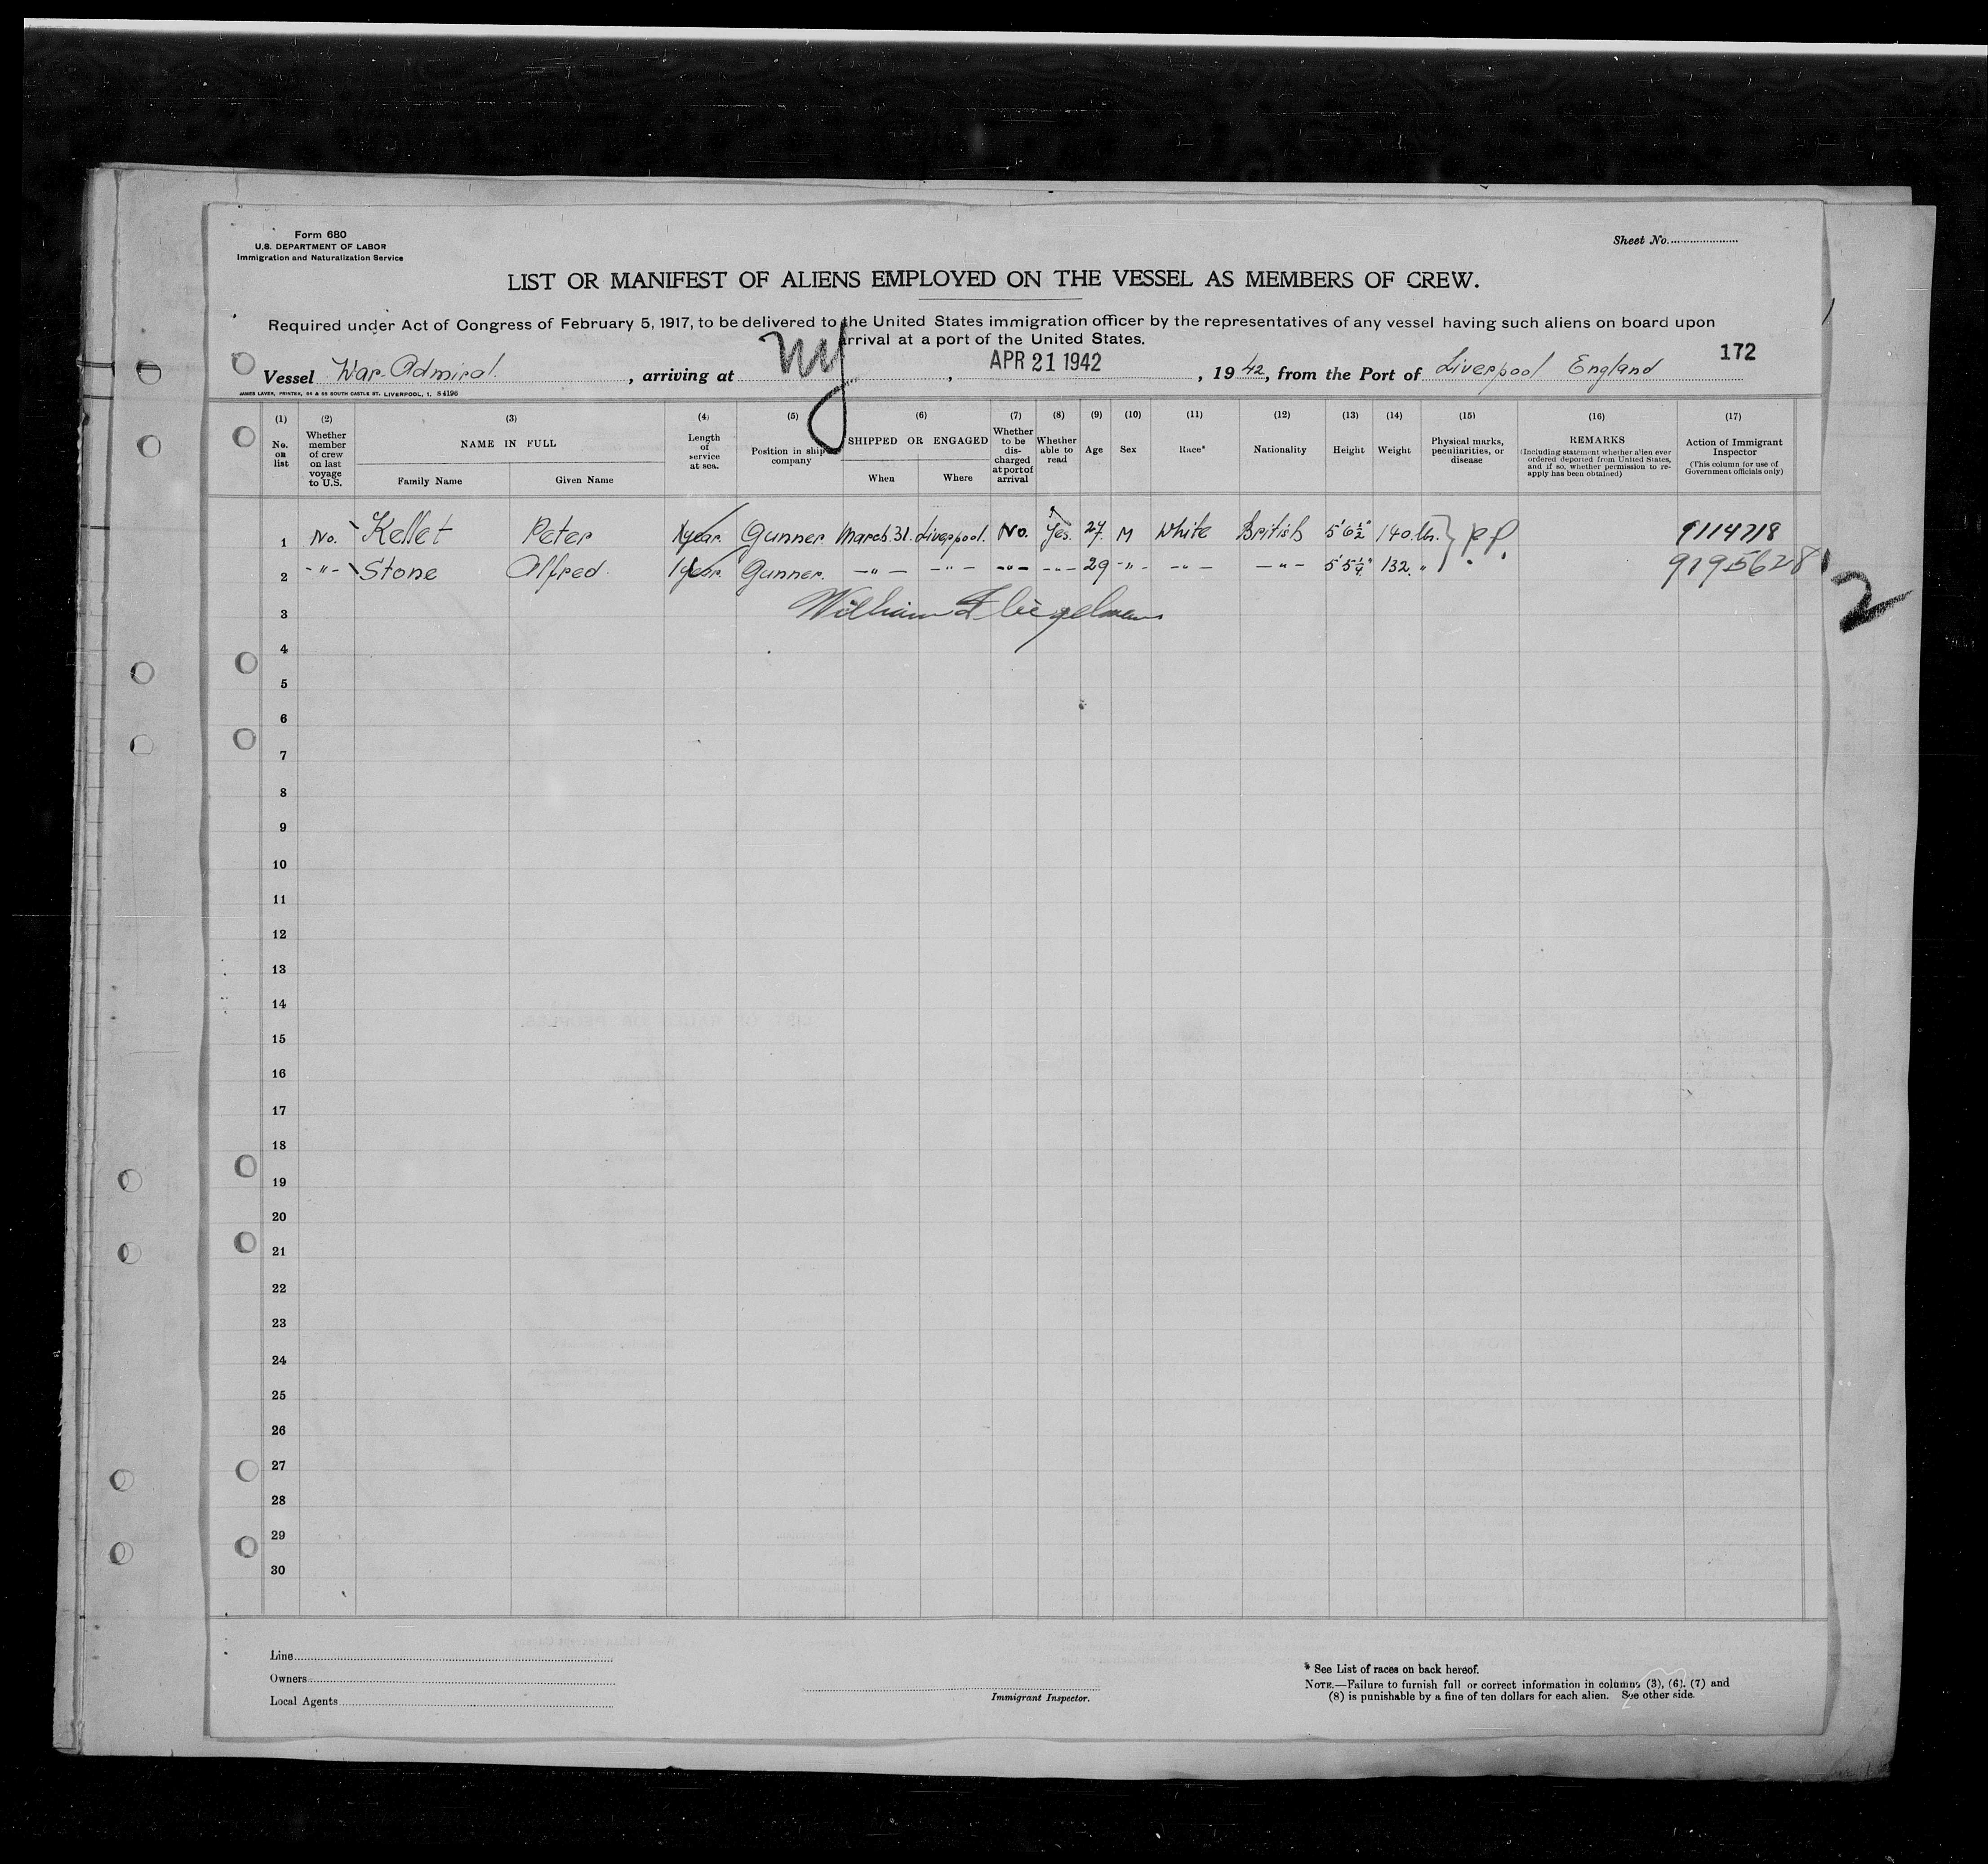 Form 680
U.S. DEPARTMENT OF LABOR
Immigration and Naturalization Service
Sheet No.
LIST OR MANIFEST OF ALIENS EMPLOYED ON THE VESSEL AS MEMBERS OF CREW.
Required under Act of Congress of February 5, 1917, to be delivered to the United States immigration officer by the representatives of any vessel having such aliens on board upon
arrival at a port of the United States.
172
Vessel War Admiral, arriving at NY, APR 21 1942, 1942, from the Port of Liverpool England
JAMES LAVER, PRINTER, 64 & 66 SOUTH CASTLE ST. LIVERPOOL, 1. S 4196
(1) No. on list
(2) Whether member of crew on last voyage to U.S.
(3) NAME IN FULL Family Name Given Name
(4) Length of service at sea.
(5) Position in ship's company
(6) SHIPPED OR ENGAGED When Where
(7) Whether to be discharged at port of arrival
(8) Whether able to read
(9) Age
(10) Sex
(11) Race*
(12) Nationality
(13) Height
(14) Weight
(15) Physical marks, peculiarities, or disease
(16) REMARKS (Including statement whether alien ever ordered deported from United States, and if so, whether permission to re-apply has been obtained)
(17) Action of Immigrant Inspector (This column for use of Government officials only)
1 No. Kellet Peter 1 year. Gunner. March 31. Liverpool. No. Yes. 27. M White British 5' 6 1/2" 140 lbs. } P.P. 9114718
2 -"- Stone Alfred. 1 year. Gunner. -"- -"- -"- -"- 29 -"- -"- -"- 5' 5 1/4" 132 " 9195628
2
3
4
5
6
7
8
9
10
11
12
13
14
15
16
17
18
19
20
21
22
23
24
25
26
27
28
29
30
Line
Owners
Local Agents
Immigrant Inspector.
* See List of races on back hereof.
NOTE.—Failure to furnish full or correct information in columns (3), (6), (7) and
(8) is punishable by a fine of ten dollars for each alien. See other side.